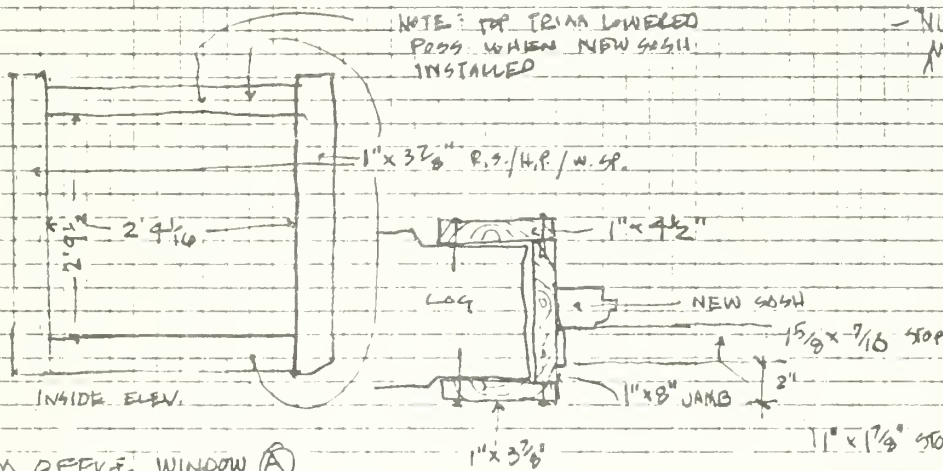 NOTE: TOP TRIM LOWERED
POSS WHEN NEW SASH
INSTALLED
1" x 3 7/8" R.S./H.P./W. SP.
2' 4 1/16
2' 9 1/2
1" x 4 1/2"
LOG
NEW SASH
1 5/8 x 7/16 STOP
2"
1" x 8" JAMB
INSIDE ELEV.
1" x 3 7/8"
1" x 1 7/8" STO
WINDOW A